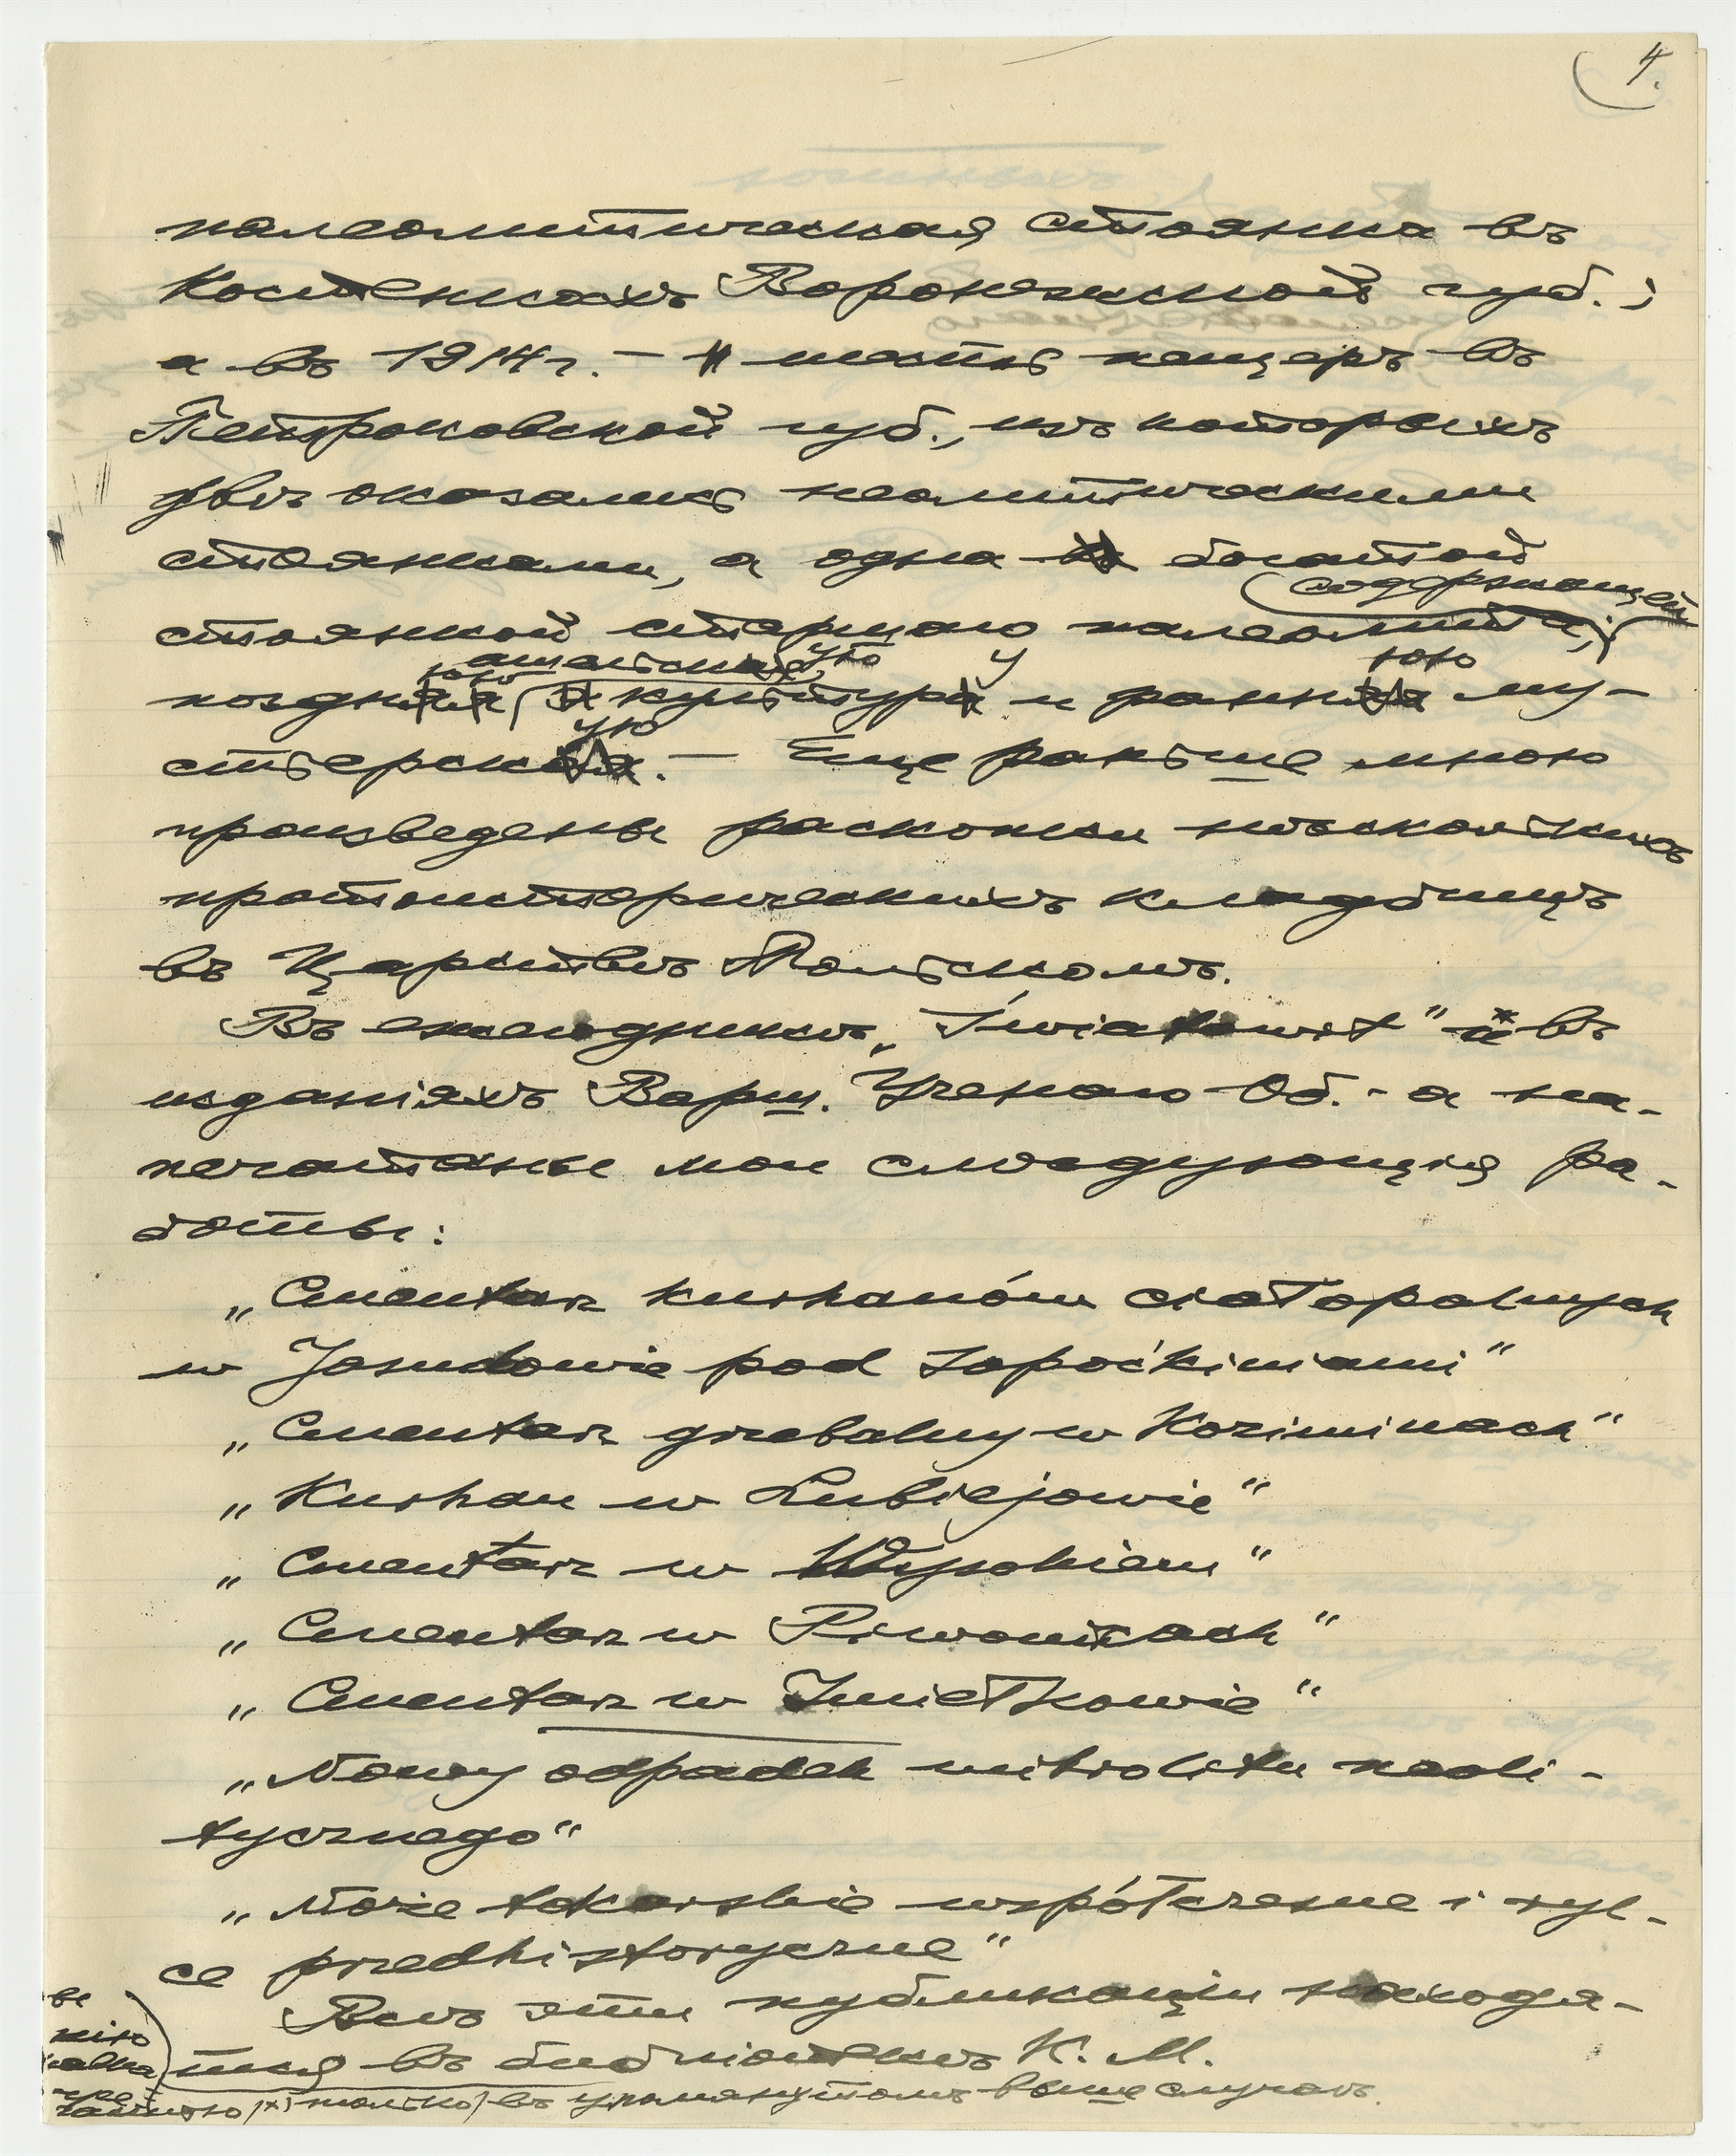 4.
палеолитическая стоянка въ
Костенкахъ Воронежской губ.;
а въ 1914 г. – шесть пещеръ въ
Петроковской губ., изъ которыхъ
двѣ оказались неолитическими
стоянками, а одна богатой
содержащей
стоянкой старшаго палеолита,
ашельскую
позднюю культуру и раннюю му-
стьерскую. – Еще раньше мною
произведены раскопки нѣсколькихъ
протоисторическихъ кладбищъ
въ Царствѣ Польскомъ.
Въ ежегодникѣ „Światowit" и* въ
изданіяхъ Варш. Ученаго Об.-а на-
печатаны мои слѣдующія ра-
боты:
„Cmentarz kurhanów ciałopalnych
w Jasudowie pod Sopoćkiniami"
„Cmentarz grzebalny w Koziminach"
„Kurhan w Lubiejowie"
„Cmentarz w Wysokiem"
„Cmentarz w Piwonicach"
„Cmentarz w Kwiatkowie"
„Nowy odpadek mikrolitu neoli-
tycznego"
„Noże tokarskie współczesne i ryl-
ce przedhistoryczne"
Всѣ эти публикаціи находя-
тся въ библіотекѣ К. М.
только въ упомянутомъ выше случаѣ.